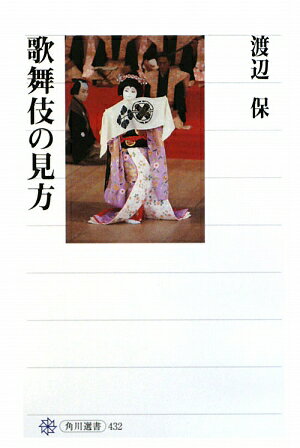 渡辺 保
歌舞伎の見方
角川選書 432